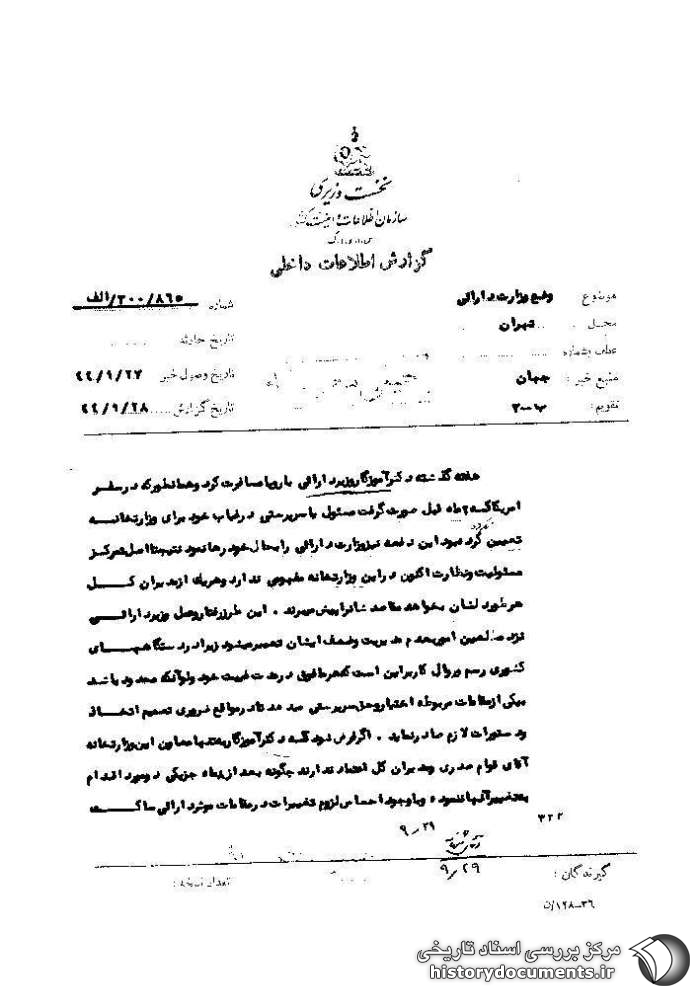 نخست وزیری
سازمان اطلاعات و امنیت کشور
س.ا.و.ا.ک
گزارش اطلاعات داخلی
موضوع وضع وزارت دارائی
شماره ۳۰۰/۸۶۵/الف
محل تهران
تاریخ حادثه
عطف بشماره
منبع خبر: جهان
تاریخ وصول خبر ۴۴/۹/۲۷
تقویم: ب-۳۰۰
تاریخ گزارش ۴۴/۹/۲۸
هفته گذشته دکتر آموزگار وزیر دارائی باروپا مسافرت کرد و همانطور که در سفر
امریکا که ۲ماه قبل صورت گرفت مسئول یا سرپرستی در غیاب خود برای وزارتخانه
تعیین نکرده بود این دفعه نیز وزارت دارائی را بحال خود رها نمود نتیجتا اصل تمرکز
مسئولیت و نظارت اکنون در این وزارتخانه مفهومی ندارد و هریک از مدیران کل
هر طور دلشان بخواهد مقاصدشان را پیش میبرند . این طرز رفتار و عمل وزیر دارائی
نزد مطلعین امور بعدم مدیریت و ضعف ایشان تعبیر میشود زیرا در دستگاههای
کشوری رسم و روال کار بر این است که هر مافوق در مدت غیبت خود ولو آنکه محدود باشد
بیکی از مقامات مربوطه اختیار و حق سرپرستی میدهد تا در مواقع ضروری تصمیم اتخاذ
و دستورات لازم صادر نماید . اگر فرض شود که دکتر آموزگار به تنها معاون این وزارتخانه
آقای قوام صدری و مدیران کل اعتماد ندارند چگونه بعد از ماه جزیکی دو مورد اقدام
به تغییر آنها ننموده و با وجود احساس لزوم تغییرات در مقامات موثر دارائی ساکت
۳۲۲
۲۹-۹
۲۹-۹
گیرندگان :
تعداد نسخه :
۳۶-۱۲۸/ن
مرکز بررسی اسناد تاریخی
historydocuments.ir